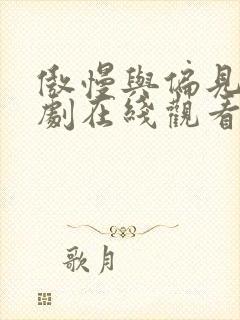 傲慢與偏見
劇在綫觀看
歌月